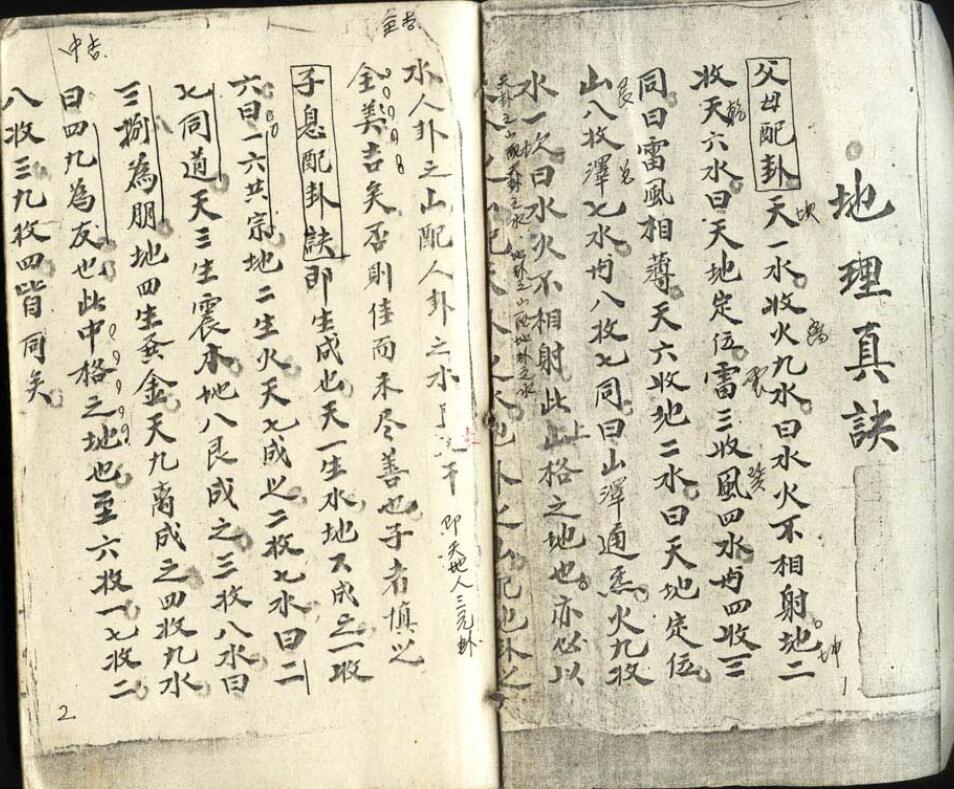 地理真訣
父母配卦天一水收火九水曰水火不相射地二
收天六水曰天地定位雷三收風四水内四收三
同曰雷風相薄天六收地二水曰天地定位
山八收澤七水内八收七同曰山澤通炁火九收
水一次曰水火不相射此上格之地也亦必以
天卦之山配天卦之水 地卦之山配地卦之水
水人卦之山配人卦之水
即天地人三元卦
全美吉矣否則佳而未尽善也子者慎之
子息配卦訣即生成也天一生水地六成之一收
六曰一六共宗地二生火天七成之二收七水曰二
七同道天三生震木地八艮成之三收八水曰
三捌為朋地四生金天九离成之四收九水
曰四九為友也此中格之地也至六收一七收二
八收三九收四皆同矣
中吉
2
坎
離
乾
震
巽
坤
艮
兌
坎
1